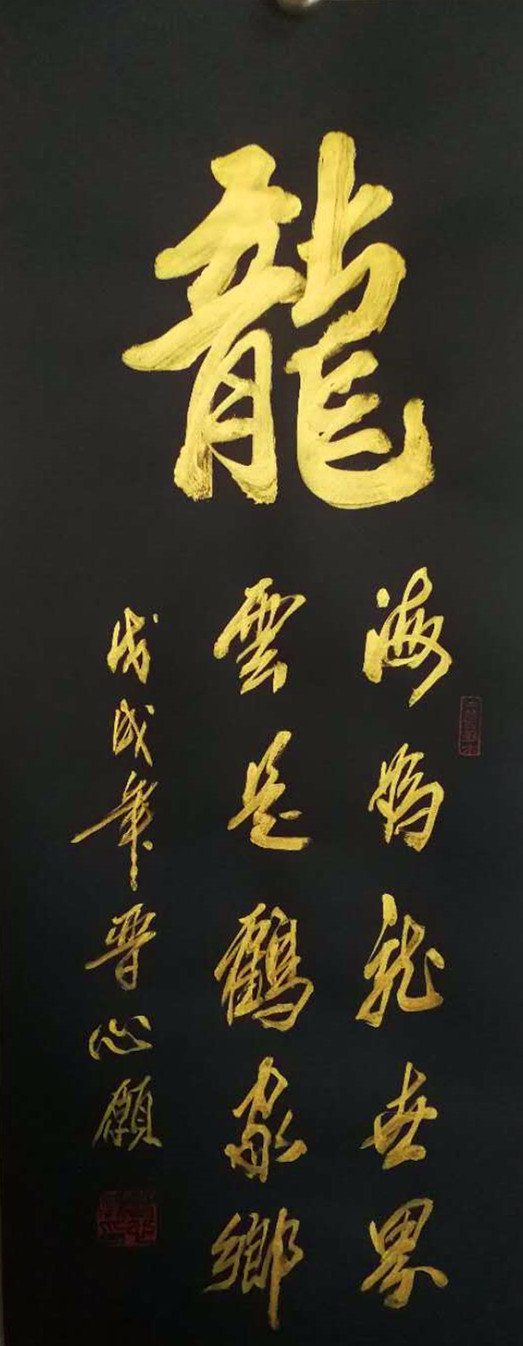 龍
海為龍世界
雲是鶴家鄉
戊戌年晉心願